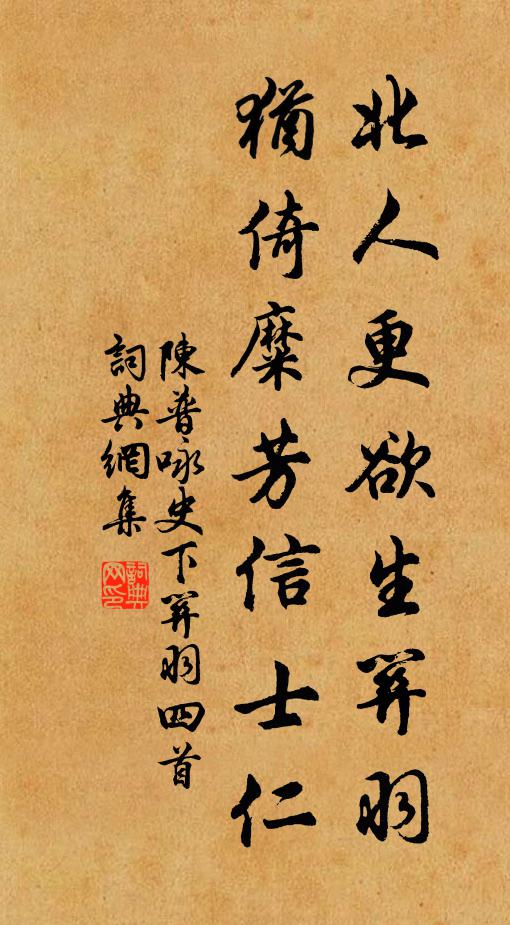 北人更欲生關羽
猶倚糜芳信士仁
陳普咏史下關羽四首
詞典網集
詞典網印